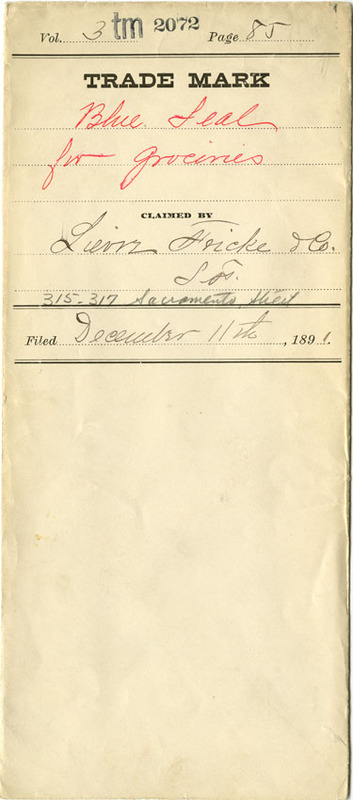 Vol. 3 tm 2072 Page 85
TRADE MARK
Blue Seal
for Groceries
CLAIMED BY
Fricke & Co.
315-317 Sacramento
Filed December 11th, 1891.